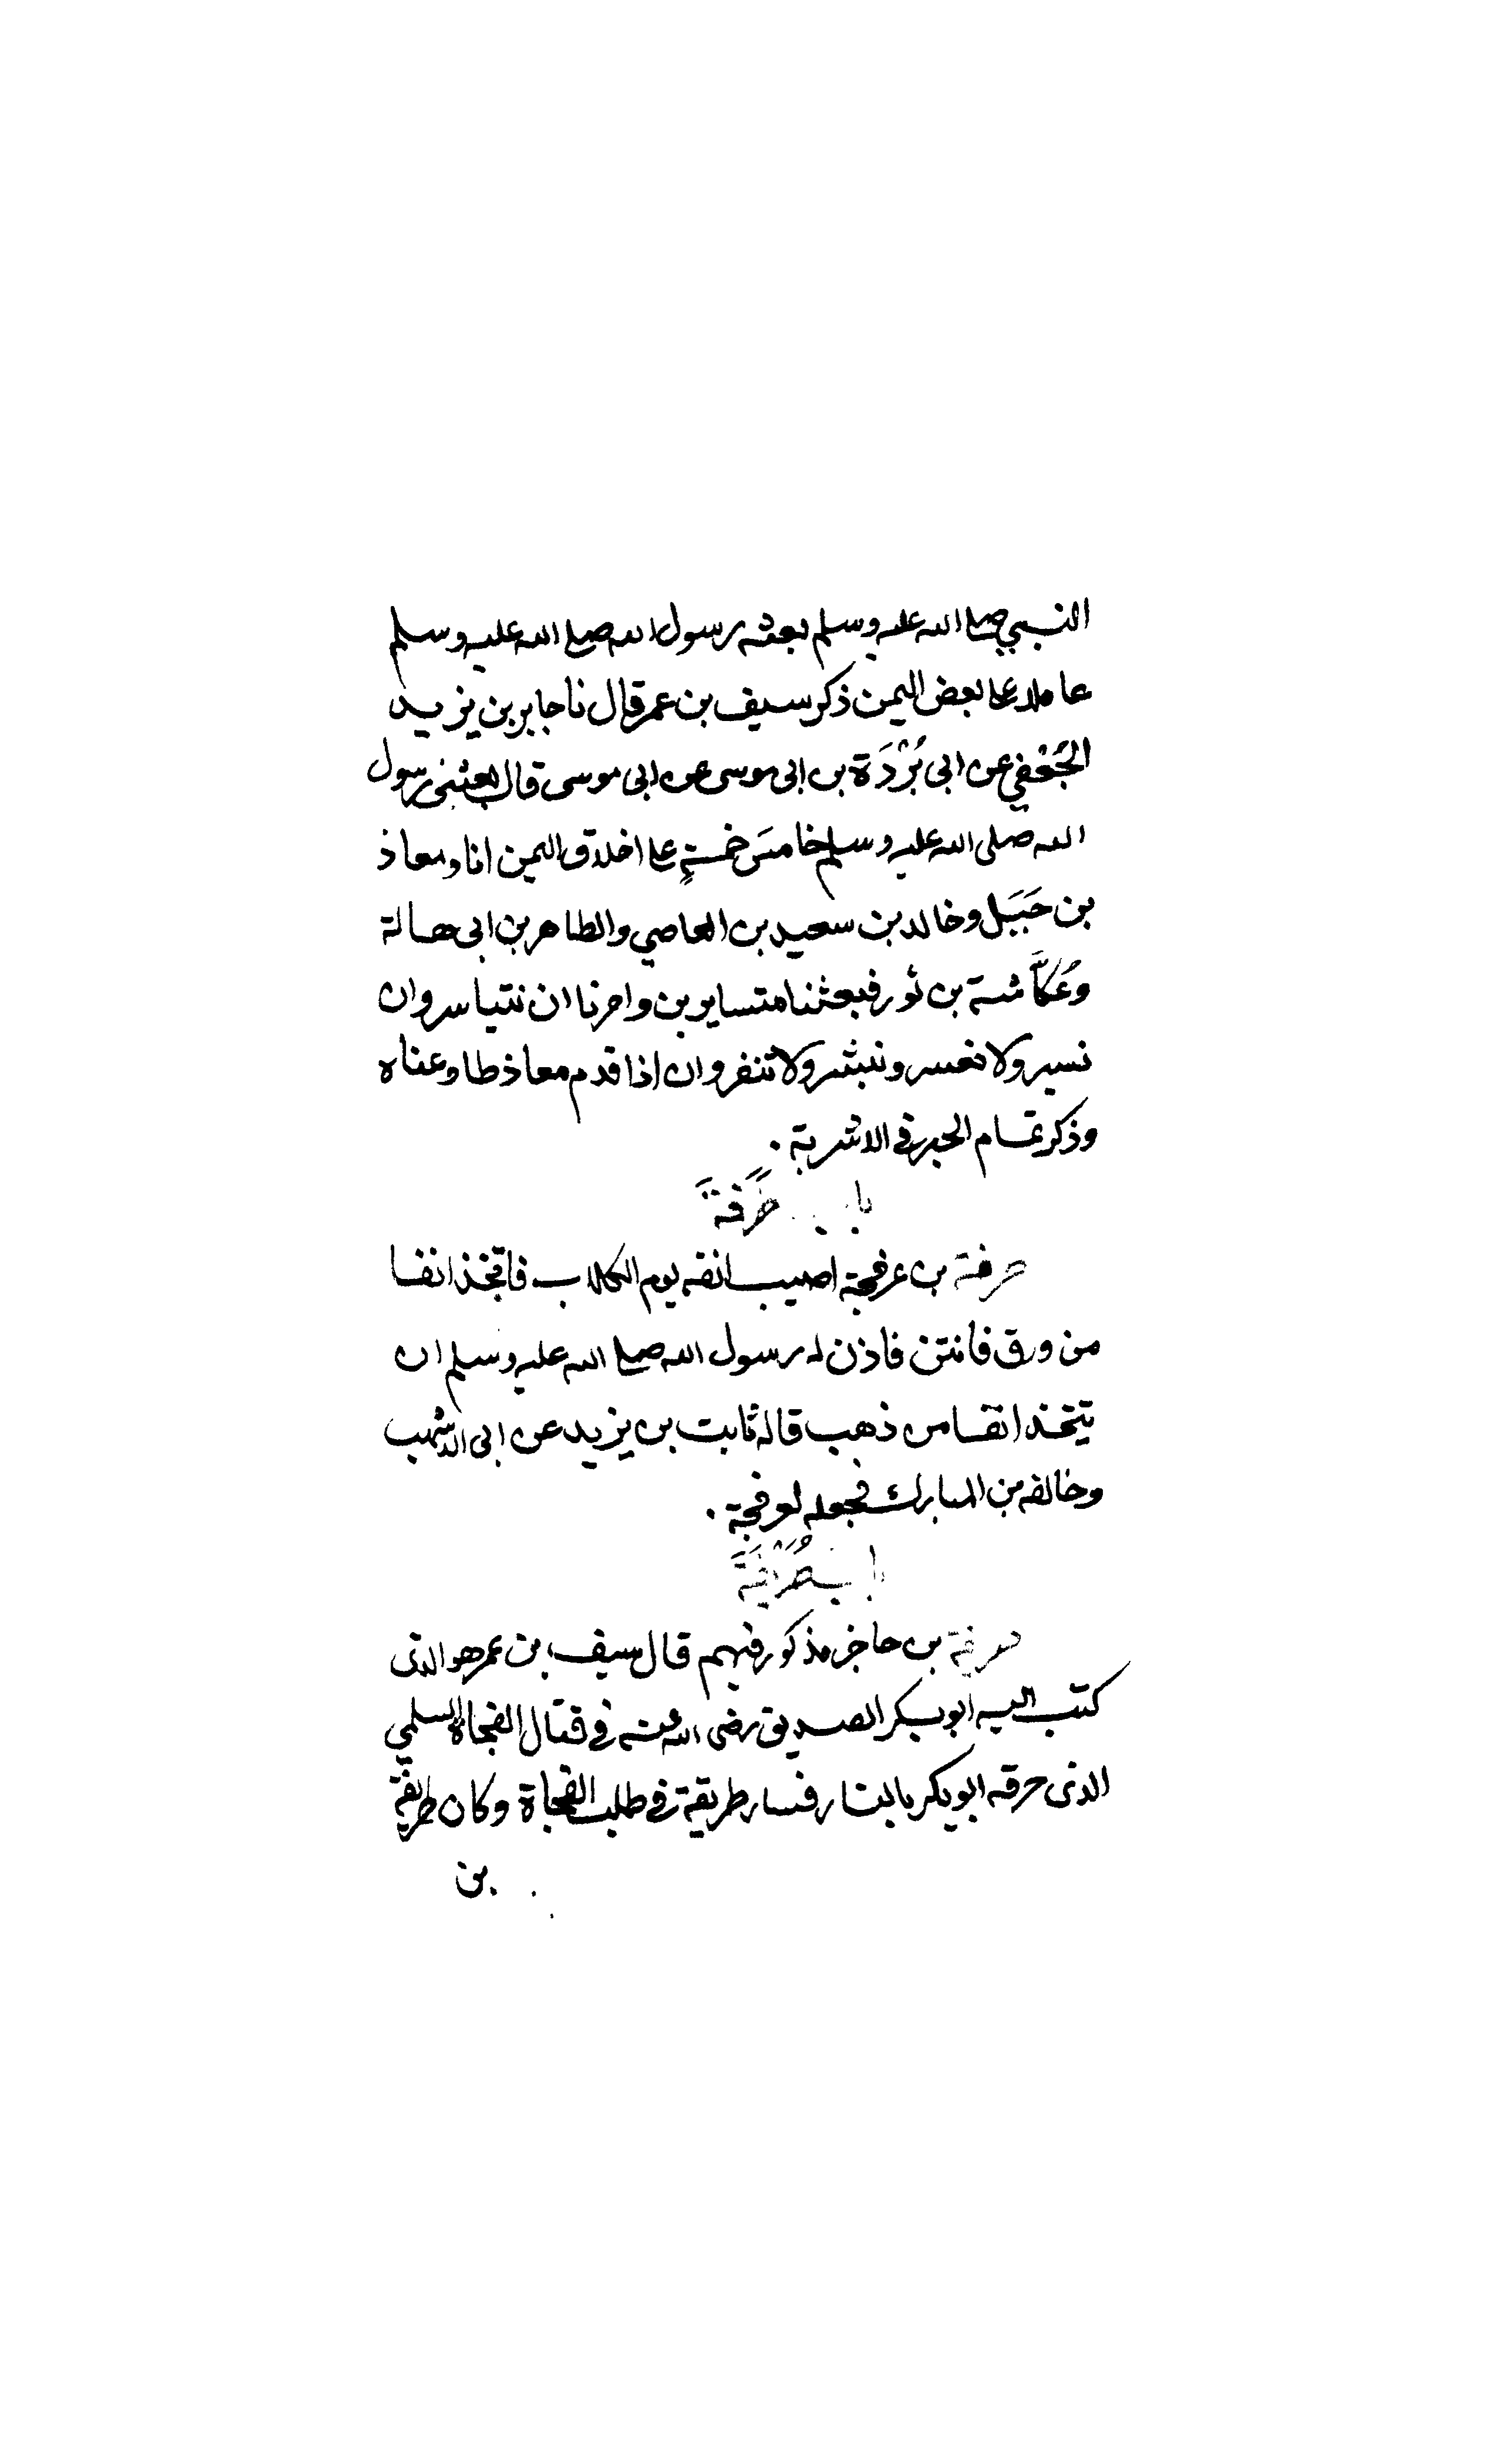 النبي صلى الله عليه وسلم بعثه رسول الله صلى الله عليه وسلم
عاملا على بعض اليمن ذكر سيف بن عمر قال نا جابر بن يزيد
الجُعْفي عن ابي بُرْدَة بن ابي موسى عن ابي موسى قال بعثني رسول
الله صلى الله عليه وسلم خامسَ خمسةٍ على اخلاق اليمن انا ومعاذ
بن جَبَيَل وخالد بن سعيد بن العاصي والطاهر بن ابي هالة
وعُكَّاشة بن ثور فبعثنا متسايرين وامرنا ان نتياسر وان
نسير ولا نعسر ونبشر ولا ننفر وان اذا قدم معاذ طاوعناه
وذكر تمام الخبر في الاشربة .
باب طَرَفَةَ
طرفة بن عرفجة اصيب انفه يوم الكلاب فاتخذ انفا
من ورق فانتن فاذن له رسول الله صلى الله عليه وسلم ان
يتخذ انفا من ذهب قاله ثابت بن يزيد عن ابي الاشهب
وخالفه بن المبارك فجعله لعرفجة .
باب طُرَيْفَةَ
طريفة بن حاجز مذكور فيهم قال سيف بن عمر هو الذى
كتب اليه ابو بكر الصديق رضى الله عنه في قتال الفجاة السلمي
الذى حرقه ابو بكر بالنار فسار طريقة في طلب الفجاة وكان طريفة
بن